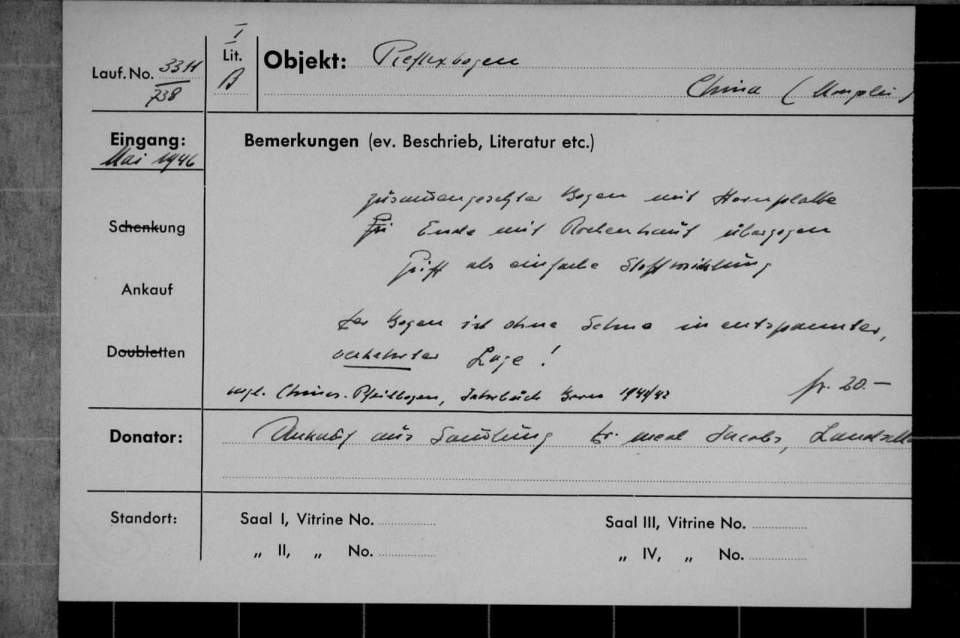 I
Lauf. No. 33H Lit. Objekt: Reflexbogen
738 B China (
Eingang: Bemerkungen (ev. Beschrieb, Literatur etc.)
Mai 1946
zusammengesetzter Bogen mit Hornplatte
Schenkung Ende mit Rochenhaut überzogen
Griff als einfache Stoffwicklung
Ankauf
Der Bogen ist ohne Sehne in entspannter,
Doubletten verkehrter Lage!
vergl. Chines. Pfeilbogen, Jahrbuch Bern 1941/42 fr. 20.–
Donator: Ankauf aus Sammlung Dr. med. Jacobs,
Standort: Saal I, Vitrine No. Saal III, Vitrine No.
„ II, „ No. „ IV, „ No.